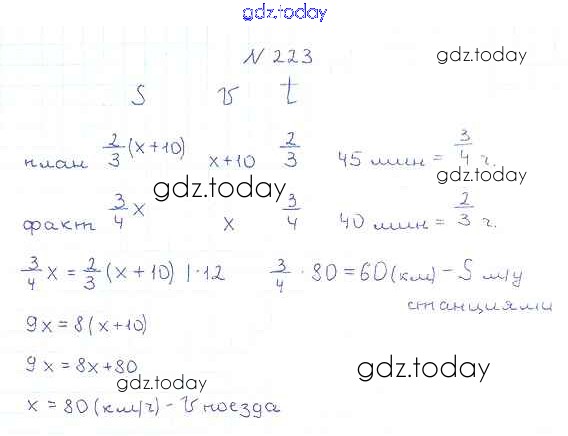 gdz.today
N 223
gdz.today
S v t
план 2/3 (x+10) x+10 2/3 45 мин = 3/4 ч.
gdz.today
gdz.today
факт 3/4 x x 3/4 40 мин = 2/3 ч.
3/4 x = 2/3 (x+10) | · 12 3/4 · 80 = 60 (км) - S м/у
станциями
9x = 8(x+10)
9x = 8x + 80
gdz.today
gdz.today
x = 80 (км/ч) - v поезда